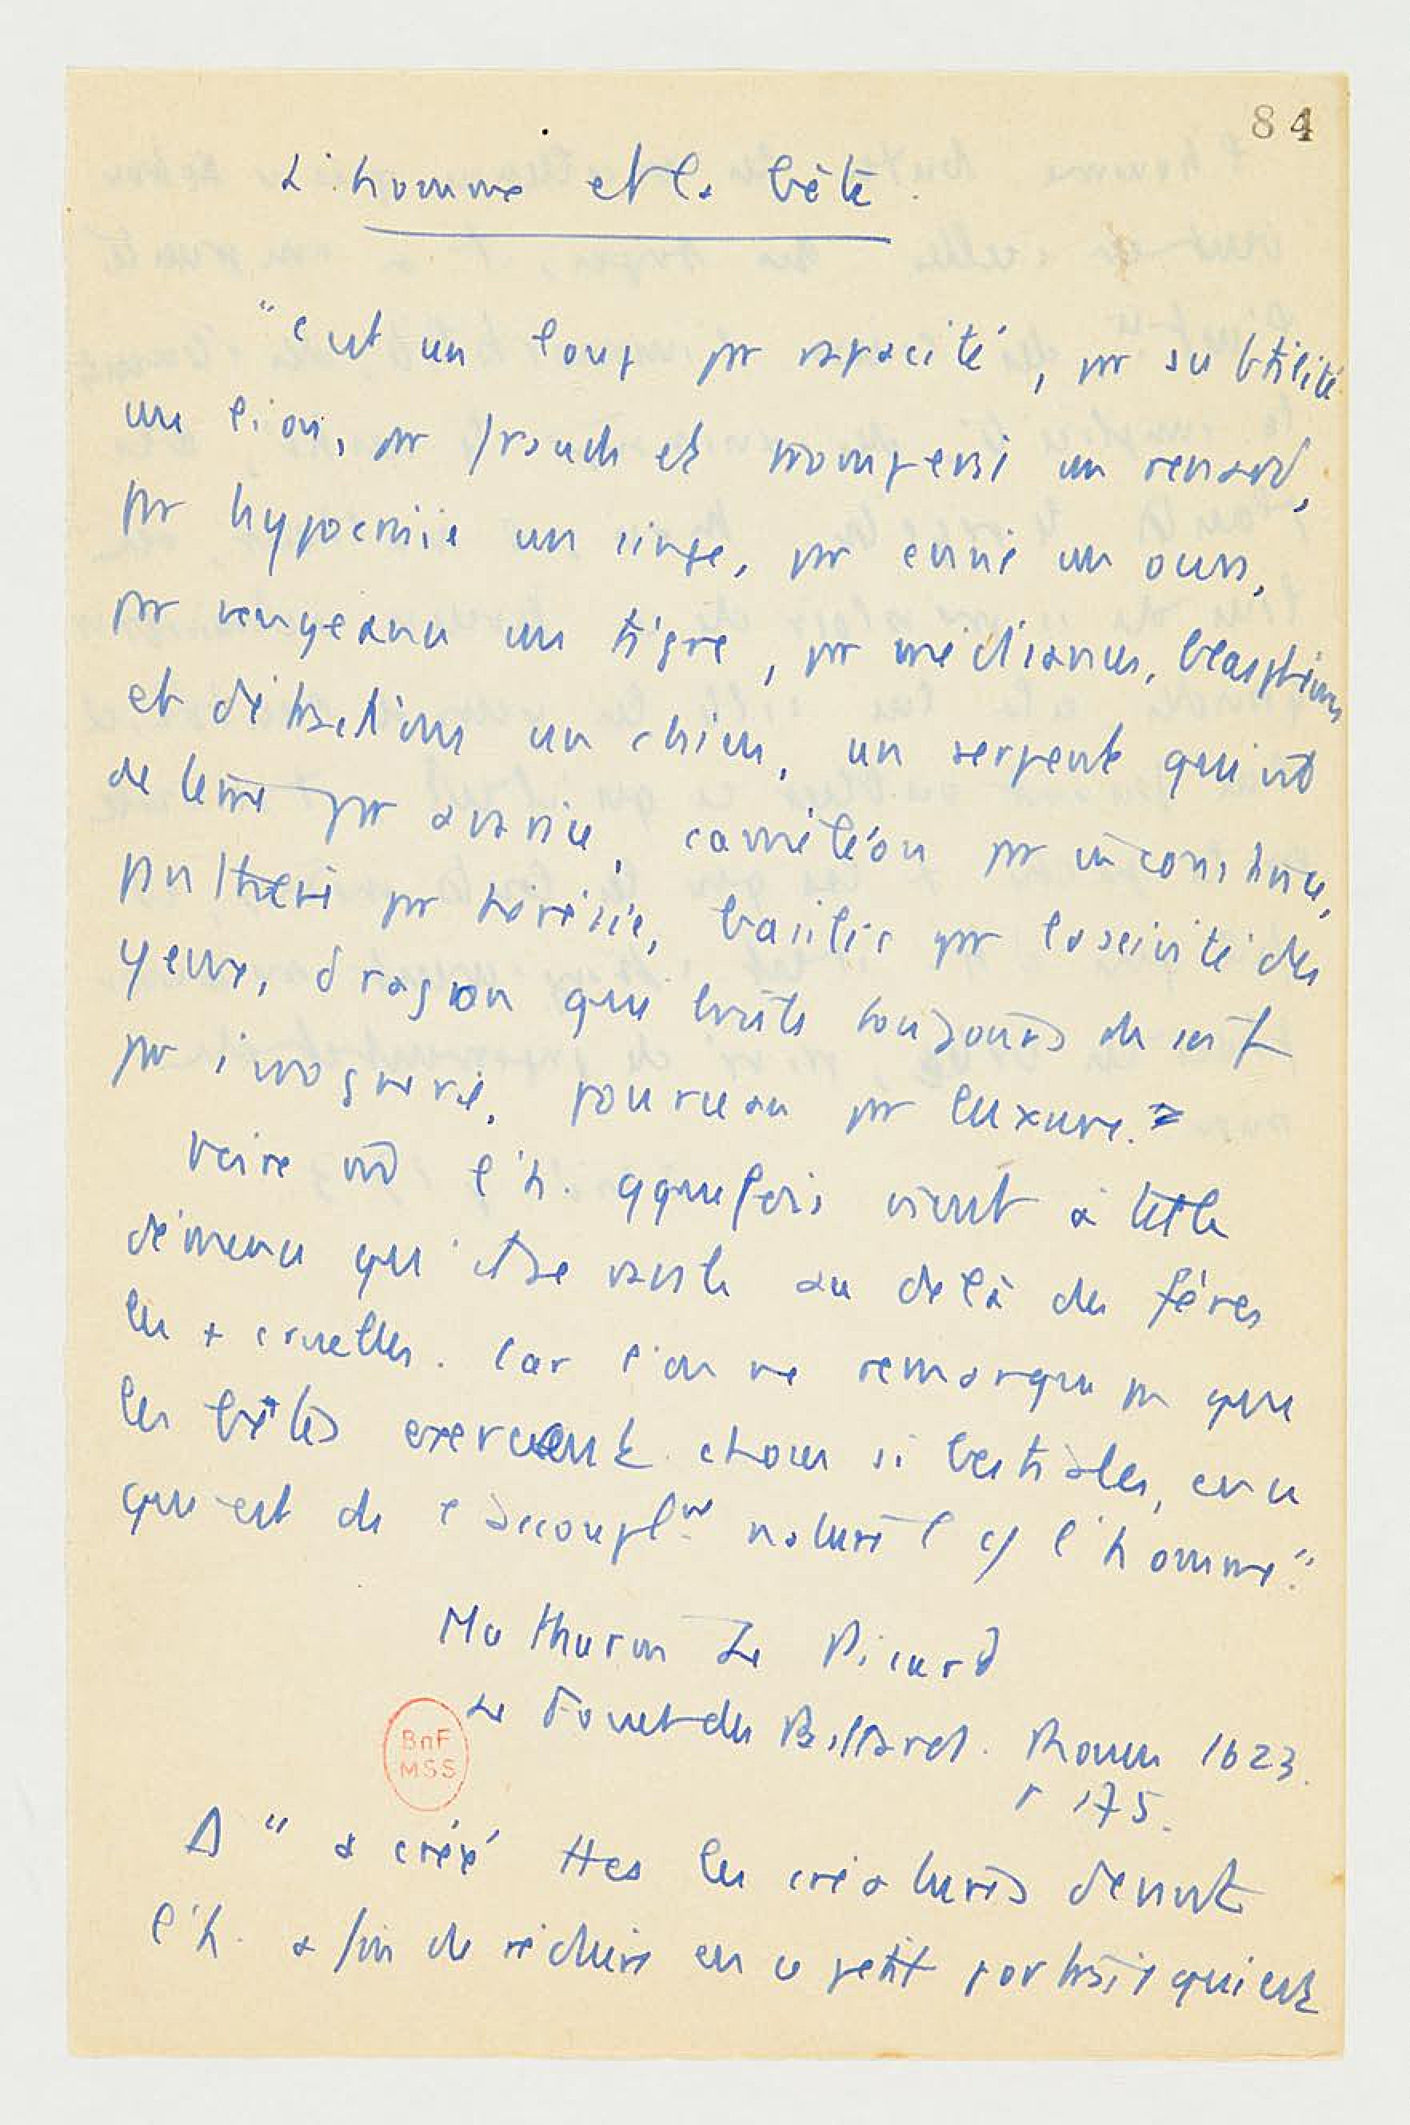 84
L'homme et la bête.
"C'est un loup pr rapacité, pr subtilité
un lion, pr fraude et tromperie un renard,
pr hypocrisie un singe, pr envie un ours,
pr vengeance un tigre, pr médisances, blasphèmes
et détractions un chien, un serpent qui vit
de terre pr avarice, caméléon pr inconstance,
panthère pr hérésie, basilic pr lascivité des
yeux, dragon qui brûle toujours de soif
pr ivrognerie, pourceau pr luxure."
Voire l'h. qquefois vient à telle
démence qu'il se ravale au delà des fères
les + cruelles. Car l'on ne remarque pas que
les bêtes exercent choses si bestiales, en ce
qui est de l'accouplt naturel c/ l'homme".
Mathurin Le Picard
Le Fouet des Paillards. Rouen 1623.
p 175.
BnF
MSS
D " a créé ttes les créatures devant
l'h. afin de réduire en ce petit portrait qui est